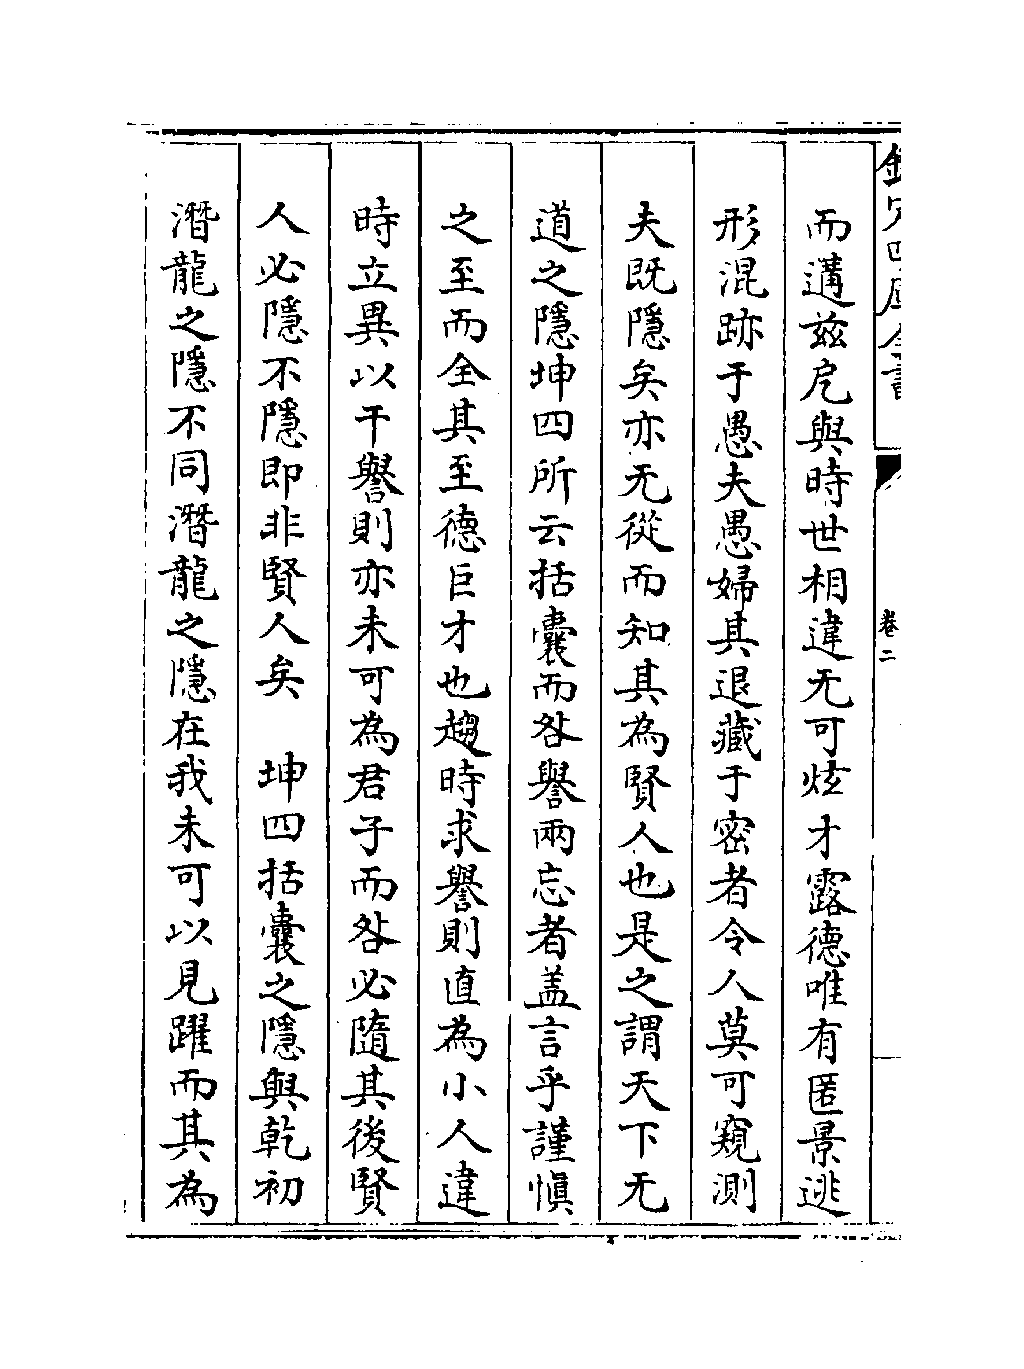 欽定四庫全書
卷二
而遘兹戹與時世相違无可炫才露德唯有匿景逃
形混跡于愚夫愚婦其退藏于密者令人莫可窺測
夫既隱矣亦无從而知其為賢人也是之謂天下无
道之隱坤四所云括囊而咎譽兩忘者盖言乎謹慎
之至而全其至德巨才也趨時求譽則直為小人違
時立異以干譽則亦未可為君子而咎必隨其後賢
人必隱不隱即非賢人矣 坤四括囊之隱與乾初
潛龍之隱不同潛龍之隱在我未可以見躍而其為